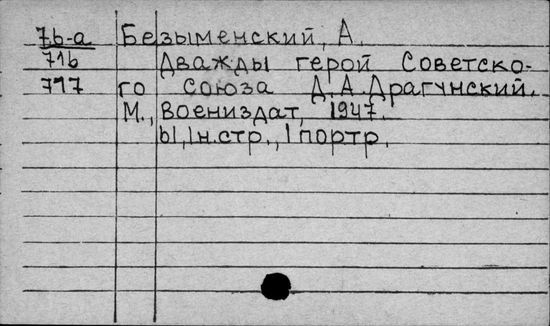 7б-а Безыменский, А.
71б Дважды герой Советско-
717 го Союза Д.А.Драгунский.
М., Воениздат, 1947.
61, 1н.стр., 1 портр.